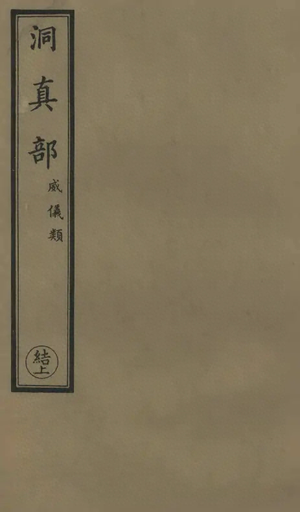 洞真部
威儀類
結上